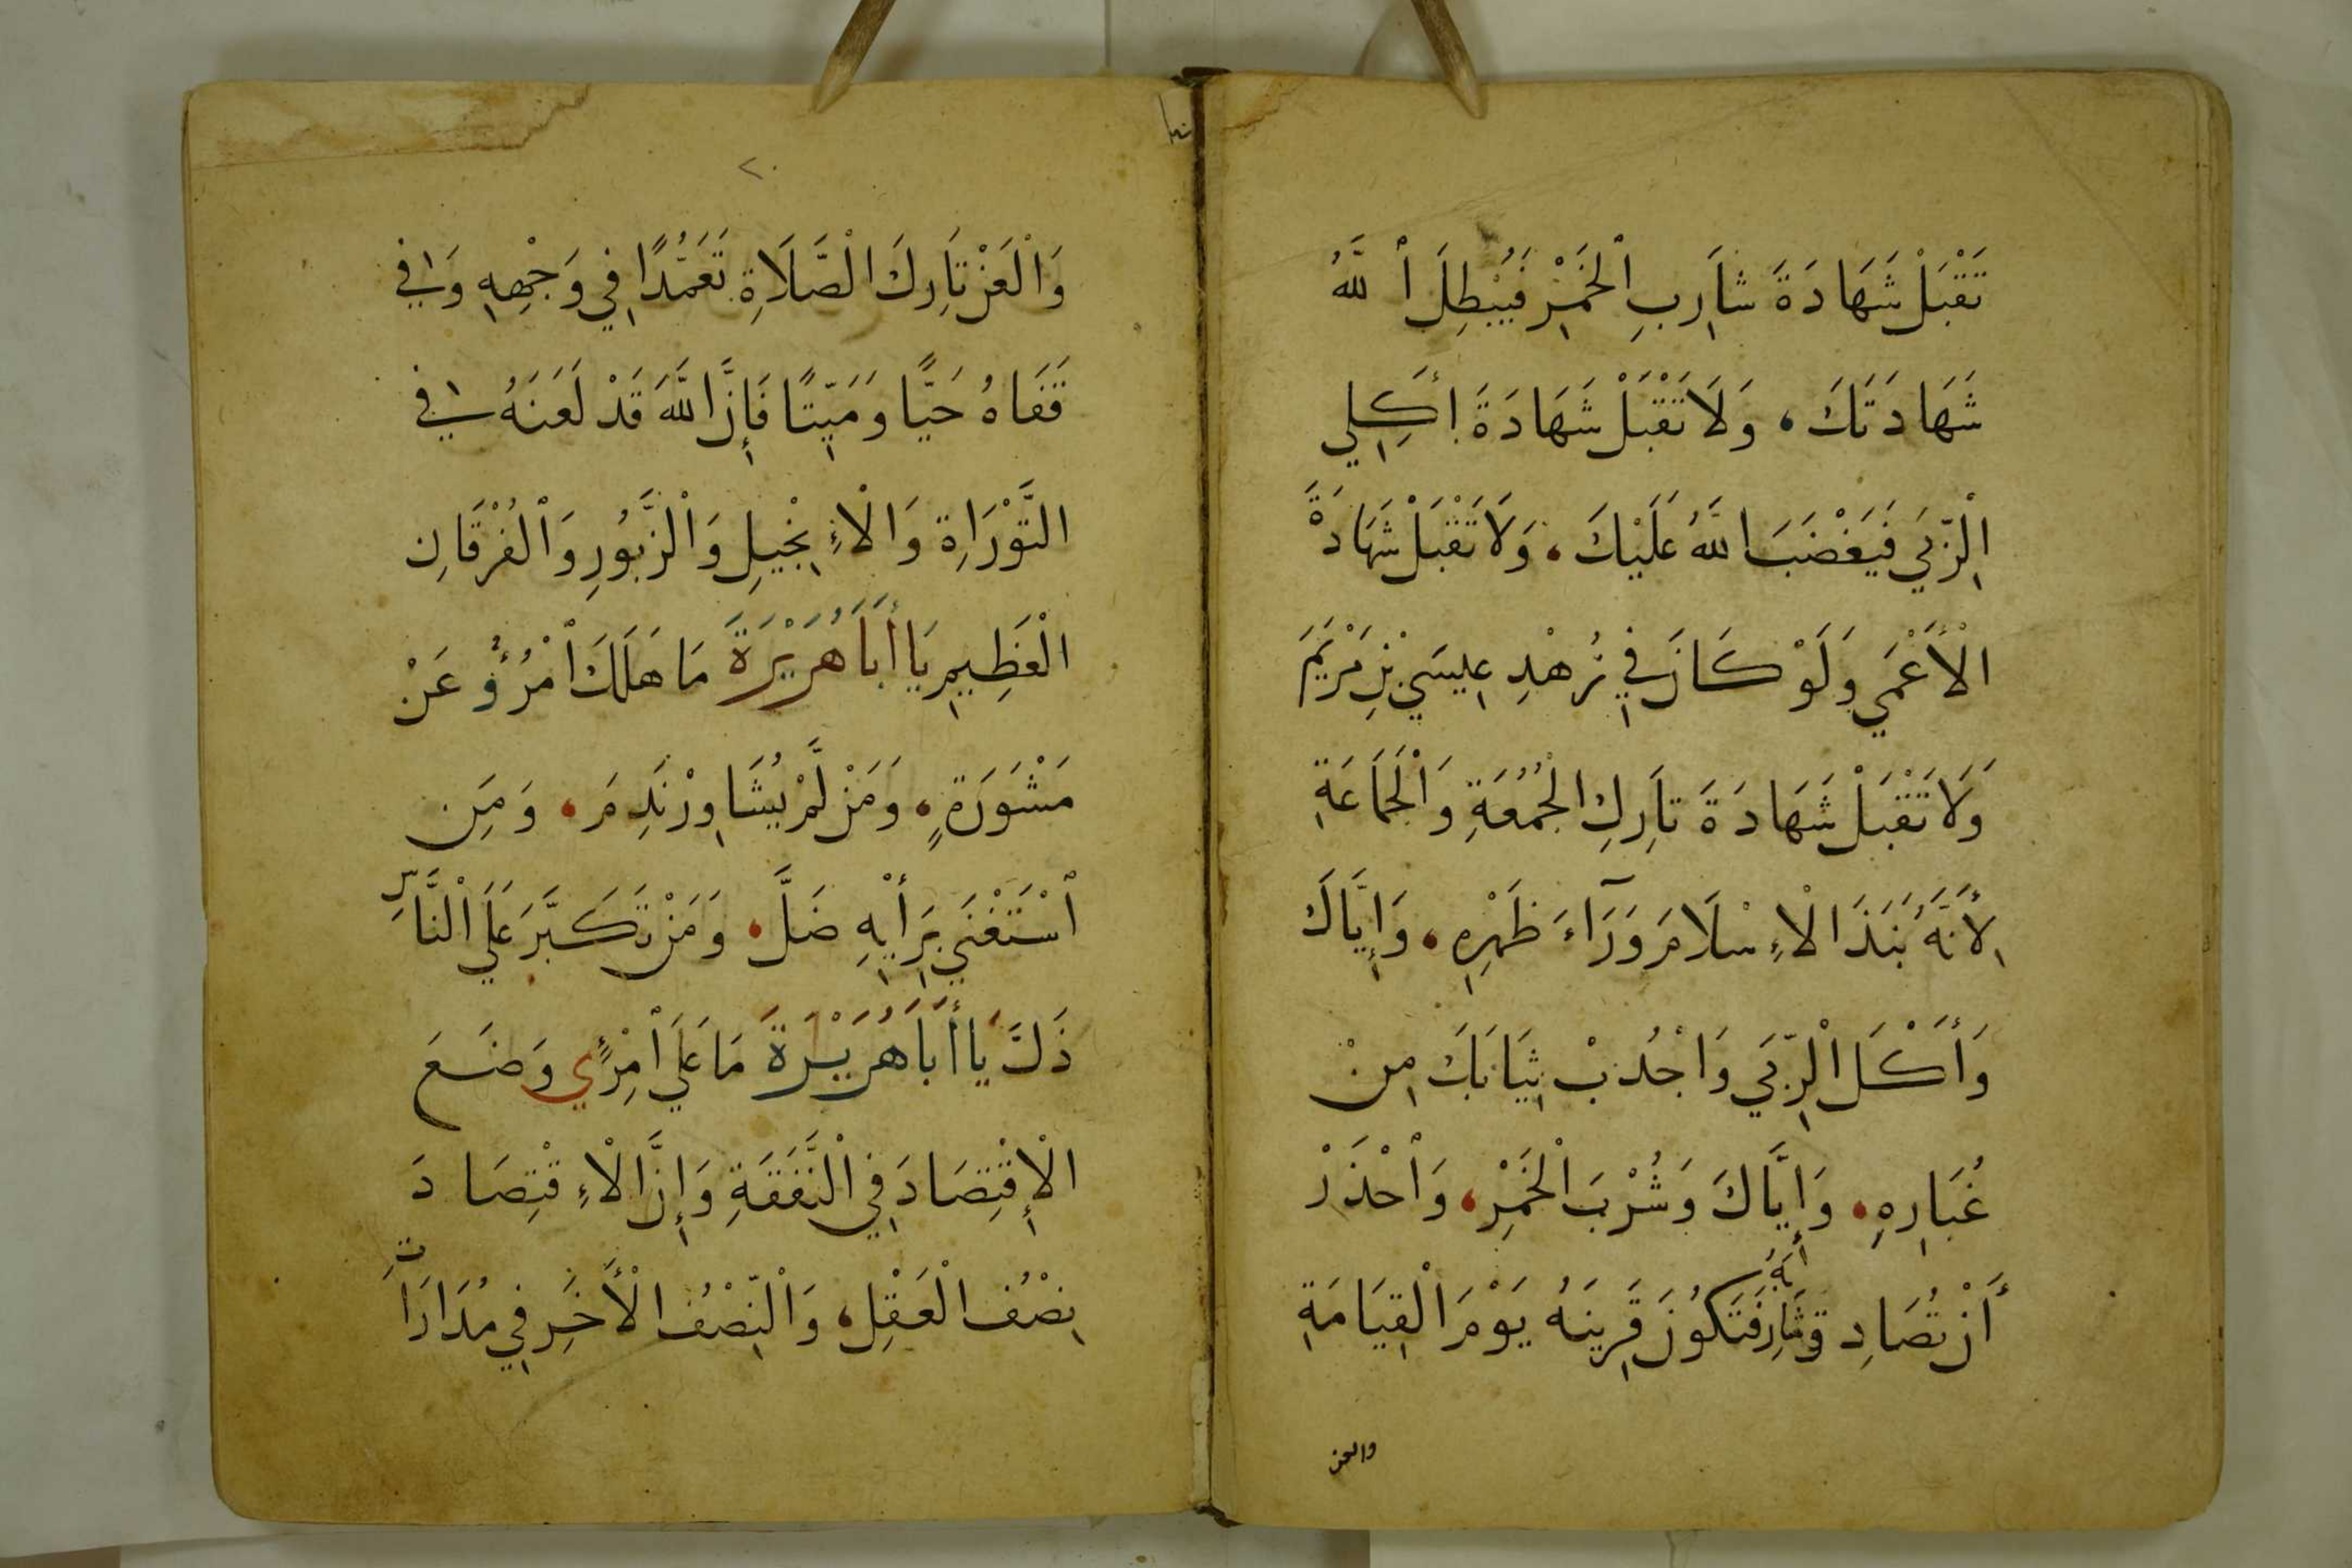 تَقْبَلْ شَهَادَةَ شَارِبِ ٱلْخَمْرِ فَيُبْطِلَ ٱللَّهُ
شَهَادَتَكَ، وَلَا تَقْبَلْ شَهَادَةَ أكِلِي
الْرِّبَي فَيَغْضَبَ اللَّهُ عَلَيْكَ، وَلَا تَقْبَلْ شَهَادَةَ
الْأَعْمَي وَلَوْ كَانَ فِي زُهْدِ عِيسَيْ بْنِ مَرْيَمَ
وَلَا تَقْبَلْ شَهَادَةَ تَارِكِ الْجُمُعَةِ وَالْجَمَاعَةِ
لِأَنَّهُ نَبَذَ الْإِسْلَامَ وَرَآءَ ظَهْرِهِ، وَإِيَّاكَ
وَأَكْلَ الْرِّبَي وَاجْذُبْ ثِيَابَكَ مِنْ
غُبَارِهِ، وَإِيَّاكَ وَشُرْبَ الْخَمْرِ، وَٱحْذَرْ
أَنْ تُصَادِقَ شَارِبَهُ فَتَكُونَ قَرِينَهُ يَوْمَ الْقِيَامَةِ
والعن
٢٠
وَالْعَنْ تَارِكَ الْصَّلَاةِ تَعَمُّدًا فِي وَجْهِهِ وَفِي
قَفَاهُ حَيًّا وَمَيِّتًا فَإِنَّ اللَّهَ قَدْ لَعَنَهُ فِي
التَّوْرَاةِ وَالْإِنْجِيلِ وَالْزَّبُورِ وَٱلْفُرْقَانِ
الْعَظِيمِ يَا أَبَا هُرَيْرَةَ مَا هَلَكَ ٱمْرُؤٌ عَنْ
مَشْوَرَةٍ، وَمَنْ لَّمْ يُشَاوِرْ نَدِمَ، وَمَنِ
ٱسْتَغْنَي بِرَأْيِهِ ضَلَّ، وَمَنْ تَكَبَّرَ عَلَي الْنَّاسِ
ذَلَّ يَا أَبَا هُرَيْرَةَ مَا عَلَي ٱمْرِئٍ وَضَعَ
الْإِقْتِصَادَ فِي الْنَّفَقَةِ وَإِنَّ الْإِقْتِصَادَ
نِصْفُ الْعَقْلِ، وَالْنِّصْفُ الْأَخَرِ فِي مُدَارَاتِ